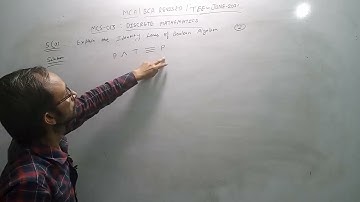 MCA/BCA (REVISED) / TEE-JUNE-2021
MCS-013: DISCRETE MATHEMATICS
5(a) Explain the Identity Laws of Boolean Algebra
Solution
P ∧ T ≡ P